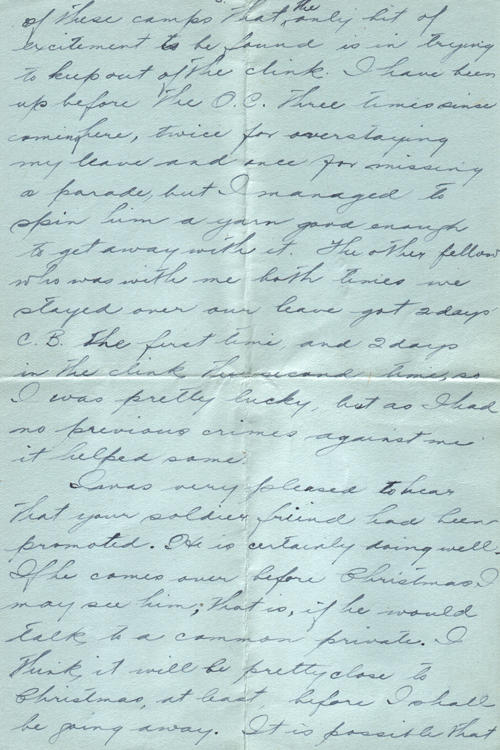 of these camps that the only bit of
excitement to be found is in trying
to keep out of the clink. I have been
up before the O.C. three times since
coming here, twice for overstaying
my leave and once for missing
a parade, but I managed to
spin him a yarn good enough
to get away with it. The other fellow
who was with me both times we
stayed over our leave got 2 days
C.B. the first time and 2 days
in the clink the second time, so
I was pretty lucky, but as I had
no previous crimes against me
it helped some.
I was very pleased to hear
that your soldier friend had been
promoted. He is certainly doing well.
If he comes over before Christmas I
may see him; that is, if he would
talk to a common private. I
think it will be pretty close to
Christmas, at least, before I shall
be going away. It is possible that